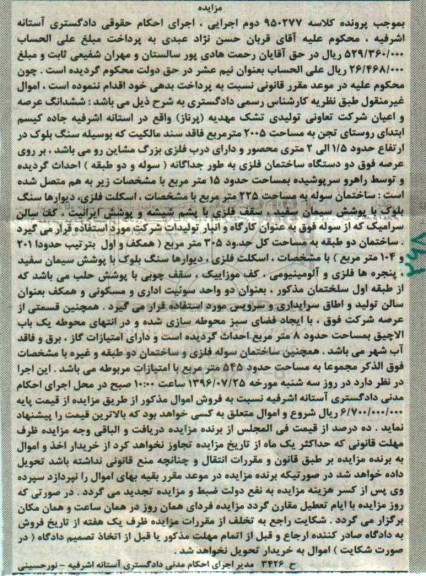 مزایده
بموجب پرونده کلاسه ۹۵۰۲۷۷ دوم اجرایی ، اجرای احکام حقوقی دادگستری آستانه
اشرفیه ، محکوم علیه آقای قربان حسن نژاد عبدی به پرداخت مبلغ علی الحساب
۵۲۹/۳۶۰/۰۰۰ ریال در حق آقایان رحمت هادی پور سالستان و مهران شفیعی ثابت و مبلغ
۲۶/۴۶۸/۰۰۰ ریال علی الحساب بعنوان نیم عشر در حق دولت محکوم گردیده است . چون
محکوم علیه در موعد مقرر قانونی نسبت به پرداخت بدهی خود اقدام ننموده است ، اموال
غیرمنقول طبق نظریه کارشناس رسمی دادگستری به شرح ذیل می باشد : ششدانگ عرصه
و اعیان شرکت تعاونی تولیدی تشک مهدیه (پرناز) واقع در آستانه اشرفیه جاده کیسم
ابتدای روستای تجن به مساحت ۲۰۰۵ مترمربع فاقد سند مالکیت که بوسیله سنگ بلوک در
ارتفاع حدود ۱/۵ الی ۲ متری محصور و دارای درب فلزی بزرگ ماشین رو می باشد ، بر روی
عرصه فوق دو دستگاه ساختمان فلزی به طور جداگانه ( سوله و دو طبقه ) احداث گردیده
و توسط راهرو سرپوشیده بمساحت حدود ۱۵ متر مربع با مشخصات زیر به هم متصل شده
است : ساختمان سوله به مساحت ۲۲۵ متر مربع با مشخصات ، اسکلت فلزی، دیوارها سنگ
بلوک با پوشش سیمان سفید ، سقف فلزی با پشم شیشه و پوشش ایرانیت ، کف سالن
سرامیک که از سوله فوق به عنوان کارگاه و انبار تولیدات شرکت مورد استفاده قرار می گیرد
. ساختمان دو طبقه به مساحت کل حدود ۳۰۵ متر مربع ( همکف و اول بترتیب حدودا ۲۰۱
و ۱۰۴ متر مربع ) با مشخصات ، اسکلت فلزی ، دیوارها سنگ و بلوک با پوشش سیمان سفید
، پنجره ها فلزی و آلومینیومی ، کف موزاییک ، سقف چوبی با پوشش حلب می باشد که
از طبقه اول ساختمان مذکور ، بعنوان دو واحد سوئیت اداری و مسکونی و همکف بعنوان
سالن تولید و اطاق سرایداری و سرویس مورد استفاده قرار می گیرد . همچنین قسمتی از
عرصه شرکت فوق ، با ایجاد فضای سبز محوطه سازی شده و در انتهای محوطه یک باب
الاچیق بمساحت حدود ۸ متر مربع احداث گردیده است و دارای امتیازات گاز ، برق و فاقد
آب شهر می باشد . همچنین ساختمان سوله فلزی و ساختمان دو طبقه و غیره با مشخصات
فوق الذکر مجموعا به مساحت حدود ۵۴۵ متر مربع با امتیازات مربوطه می باشد . این اجرا
در نظر دارد در روز سه شنبه مورخه ۱۳۹۶/۰۷/۲۵ ساعت ۱۰:۰۰ صبح در محل اجرای احکام
مدنی دادگستری آستانه اشرفیه نسبت به فروش اموال مذکور از طریق مزایده از قیمت پایه
۶/۷۰۰/۰۰۰/۰۰۰ ریال شروع و اموال متعلق به کسی خواهد بود که بالاترین قیمت را پیشنهاد
نماید . ده درصد از قیمت فی المجلس از برنده مزایده دریافت و الباقی وجه مزایده ظرف
مهلت قانونی که حداکثر یک ماه از تاریخ مزایده تجاوز نخواهد کرد از خریدار اخذ و اموال
به برنده مزایده بر طبق قانون و مقررات انتقال و چنانچه منع قانونی نداشته باشد تحویل
داده خواهد شد در صورتیکه برنده مزایده در موعد مقرر بقیه بهای اموال را نپردازد سپرده
وی پس از کسر هزینه مزایده به نفع دولت ضبط و مزایده تجدید می گردد . در صورتی که
روز مزایده با ایام تعطیل مقارن گردد مزایده فردای همان روز در همان ساعت و همان مکان
برگزار می گردد . شکایت راجع به تخلف از مقررات مزایده ظرف یک هفته از تاریخ فروش
به دادگاه صادر کننده ارجاع و قبل از اتمام مهلت مذکور یا قبل از اتخاذ تصمیم دادگاه ( در
صورت شکایت ) اموال به خریدار تحویل نخواهد شد .
ح ۳۴۲۶ مدیر اجرای احکام مدنی دادگستری آستانه اشرفیه - نورحسینی